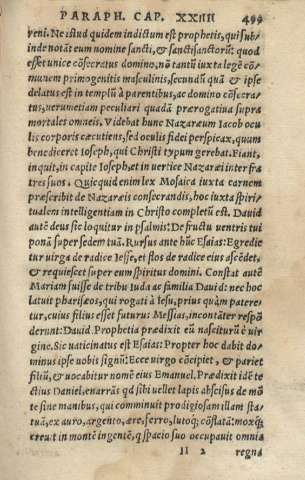 PARAPH. CAP. XXIIII 499
veni. Ne istud quidem indictum est prophetis, qui sub/
inde notãs eum nomine sancti, & sanctisanctorũ: quod
esset unice cõsecratus domino, nõ tantũ iuxta legẽ cõ-
munem primogenitis masculinis, secundũ quã & ipse
delatus est in templũ à parentibus, ac domino cõsecra-
tus, uerumetiam peculiari quadã prærogatiua supra
mortales omneis, Videbat hunc Nazaræum Iacob ocu
lis corporis cæcutiens, sed oculis fidei perspicax, quum
benediceret Ioseph, qui Christi typum gerebat. Fiant,
inquit, in capite Ioseph, et in uertice Nazaræi inter fra
tres suos. Quicquid enim lex Mosaica iuxta carnem
præscribit de Nazaræis consecrandis, hoc iuxta spiri-
tualem intelligentiam in Christo completũ est. David
autẽ deus sic loquitur in psalmis: De fructu uentris tui
ponã super sedem tuã. Rursus ante hũc Esaias: Egredie
tur uirga de radice Iesse, et flos de radice eius ascẽdet,
& requiescet super eum spiritus domini. Constat autẽ
Mariam fuisse de tribu Iuda ac familia David: nec hoc
latuit phariseos, qui rogati à Iesu, prius quàm patere-
tur, cuius filius esset futurus Messias, incontãter respõ
derunt: David. Prophetia prædixit eũ nasciturũ è uir
gine. Sic uaticinatus est Esaias: Propter hoc dabit do-
minus ipse uobis signũ: Ecce uirgo cõcipiet, & pariet
filiũ, & uocabitur nomẽ eius Emanuel. Prædixit idẽ te
ctius Daniel, enarrãs qd sibi uellet lapis abscisus de mõ
te sine manibus, qui comminuit prodigiosam illam sta
tuã, ex auro, argento, ære, ferro, lutoq; cõflatã: moxq;
creuit in montẽ ingentẽ, q spacio suo occupauit omnia
II 2 regna